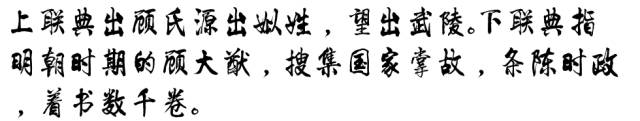 上联典出顾氏源出姒姓，望出武陵。下联典指
明朝时期的顾大猷，搜集国家掌故，条陈时政
，着书数千卷。